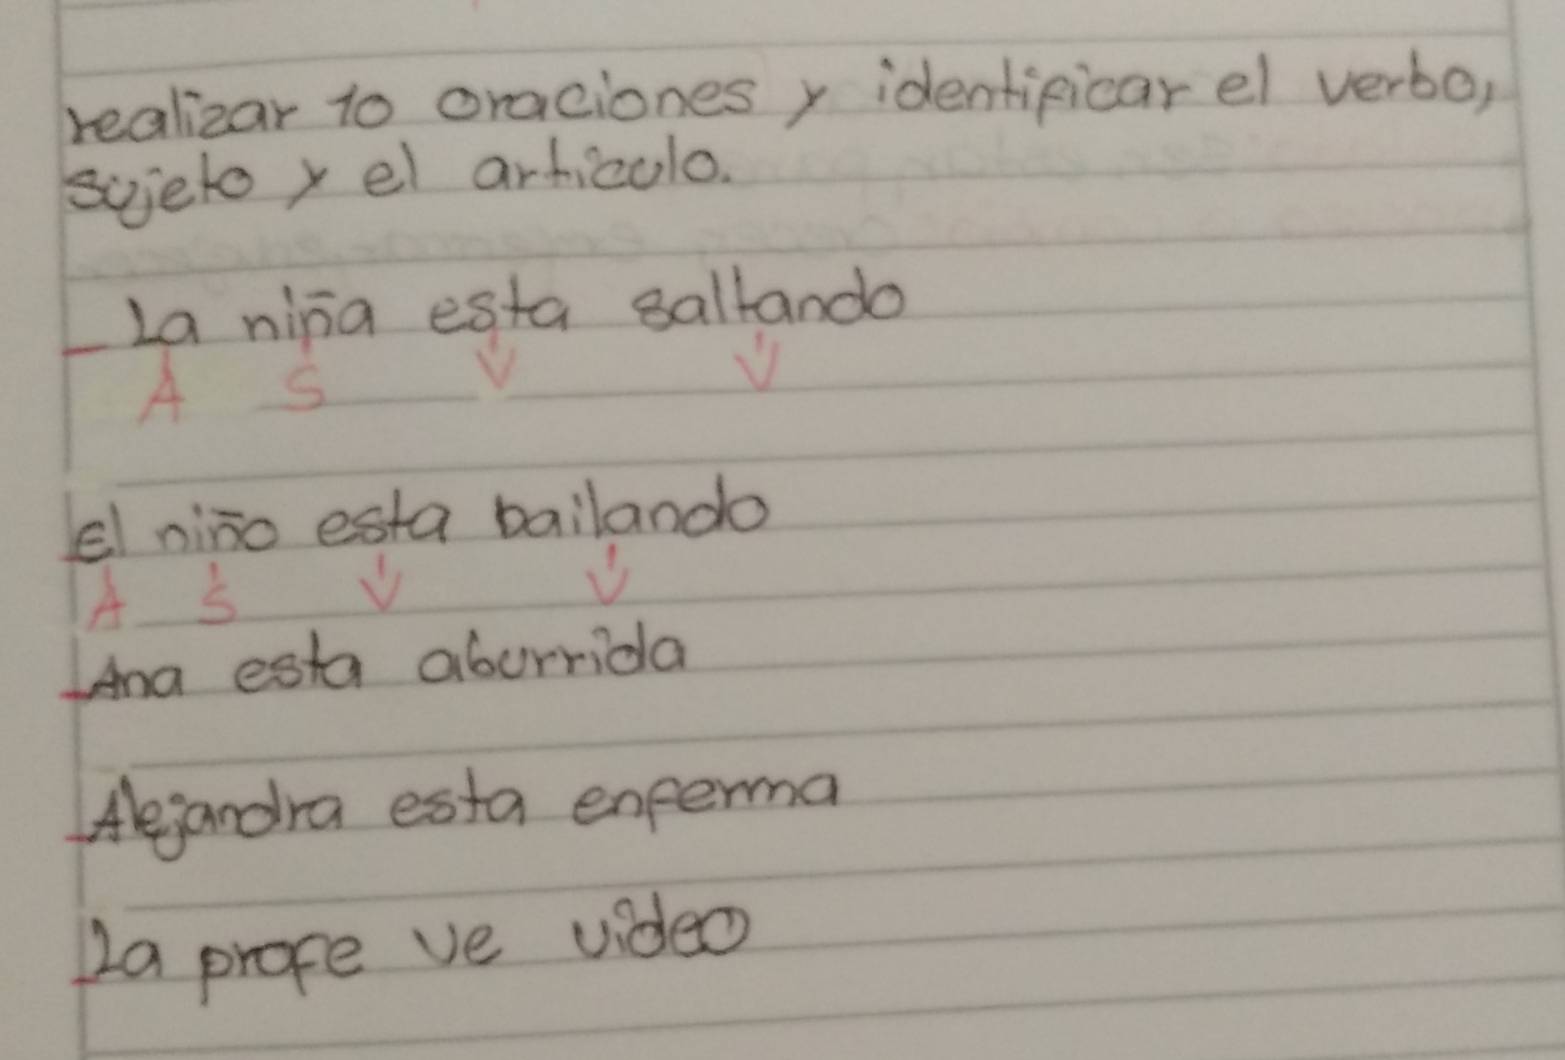 realizar 10 oraciones y identificar el verbo,
sujeto y el articulo.
- La niña esta saltando
A S V V
- El niño esta bailando
A S V V
- Ana esta aburrida
- Alejandra esta enferma
- La profe ve video